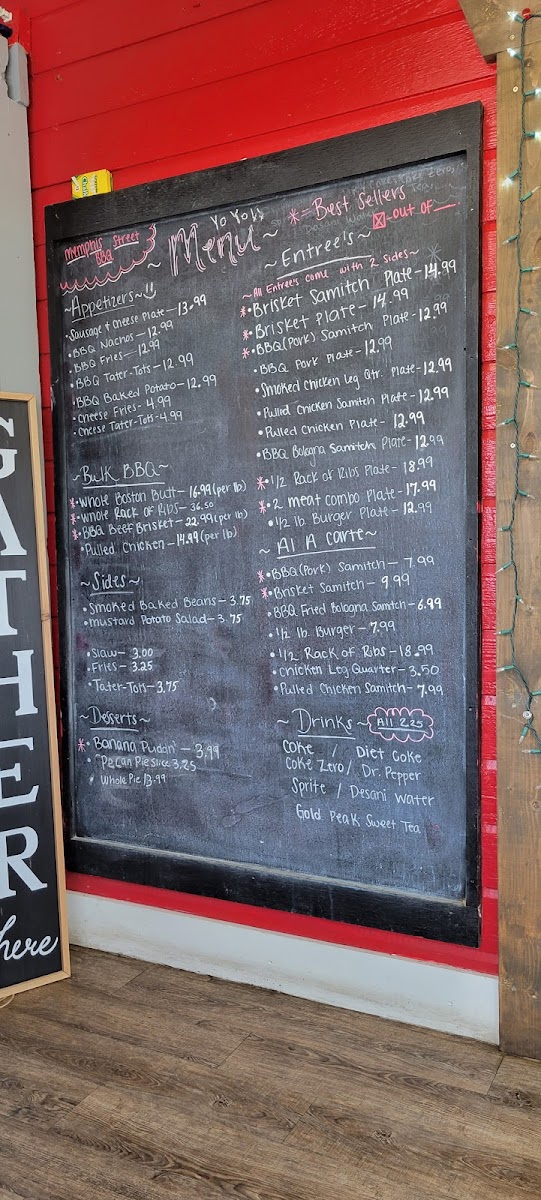 Memphis Street
BBQ
YOYO's
~ Menu ~
* = Best Sellers
☒ - out of
~Appetizers~
• Sausage & Cheese Plate - 13.99
• BBQ Nachos - 12.99
• BBQ Fries - 12.99
• BBQ Tater-Tots - 12.99
• BBQ Baked Potato - 12.99
• Cheese Fries - 4.99
• Cheese Tater-Tots - 4.99
~Bulk BBQ~
*• Whole Boston Butt - 16.99 (per lb)
*• Whole Rack of Ribs - 36.50
*• BBQ Beef Brisket - 22.99 (per lb)
• Pulled Chicken - 14.99 (per lb)
~Sides~
• Smoked Baked Beans - 3.75
• Mustard Potato Salad - 3.75
• Slaw - 3.00
• Fries - 3.25
• Tater-Tots - 3.75
~Desserts~
*• Banana Puddn' - 3.99
• Pecan Pie Slice 3.25
• Whole Pie 13.99
~ Entree's ~
~ All Entree's come with 2 sides ~
*• Brisket Samitch Plate - 14.99
*• Brisket Plate - 14.99
*• BBQ (Pork) Samitch Plate - 12.99
• BBQ Pork Plate - 12.99
• Smoked Chicken Leg Qtr. Plate - 12.99
• Pulled Chicken Samitch Plate - 12.99
• Pulled Chicken Plate - 12.99
• BBQ Bologna Samitch Plate - 12.99
*• 1/2 Rack of Ribs Plate - 18.99
*• 2 meat combo Plate - 17.99
• 1/2 lb Burger Plate - 12.99
~ Al A Carte ~
*• BBQ (Pork) Samitch - 7.99
*• Brisket Samitch - 9.99
• BBQ Fried Bologna Samitch - 6.99
• 1/2 lb. Burger - 7.99
• 1/2 Rack of Ribs - 18.99
• Chicken Leg Quarter - 3.50
• Pulled Chicken Samitch - 7.99
~ Drinks ~ All 2.25
Coke / Diet Coke
Coke Zero / Dr. Pepper
Sprite / Desani Water
Gold Peak Sweet Tea
GATHER
here